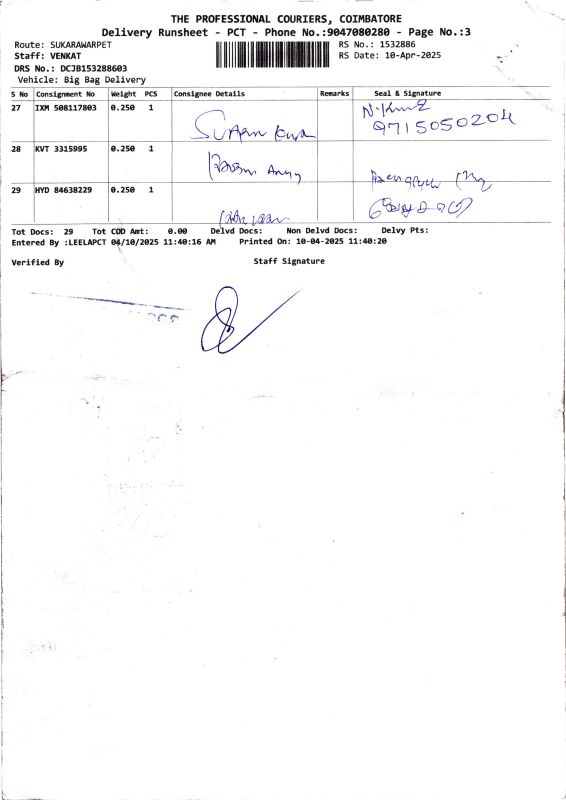 THE PROFESSIONAL COURIERS, COIMBATORE
Delivery Runsheet - PCT - Phone No.:9047080280 - Page No.:3
Route: SUKARAWARPET RS No.: 1532886
Staff: VENKAT RS Date: 10-Apr-2025
DRS No.: DCJB153288603
Vehicle: Big Bag Delivery
S No Consignment No Weight PCS Consignee Details Remarks Seal & Signature
27 IXM 508117803 0.250 1
9715050204
28 KVT 3315995 0.250 1
29 HYD 84638229 0.250 1
Tot Docs: 29 Tot COD Amt: 0.00 Delvd Docs: Non Delvd Docs: Delvy Pts:
Entered By :LEELAPCT 04/10/2025 11:40:16 AM Printed On: 10-04-2025 11:40:20
Verified By Staff Signature